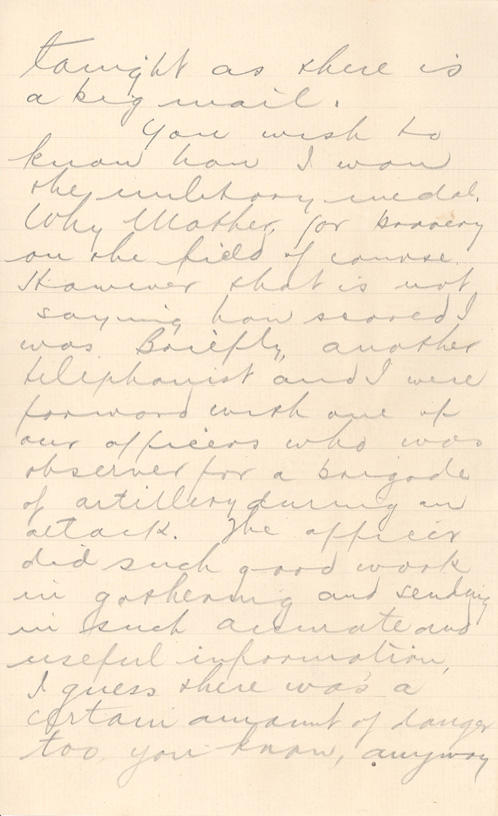 tonight as there is
a big mail.
You wish to
know how I won
the military medal.
Why Mother, for bravery
on the field of course.
However that is not
saying how scared I
was Briefly, another
telephonist and I were
forward with one of
our officers who was
observer for a brigade
of artillery during an
attack. The officer
did such good work
in gathering and sending
in such accurate and
useful information,
I guess there was a
certain amount of danger
too, you know, anyway